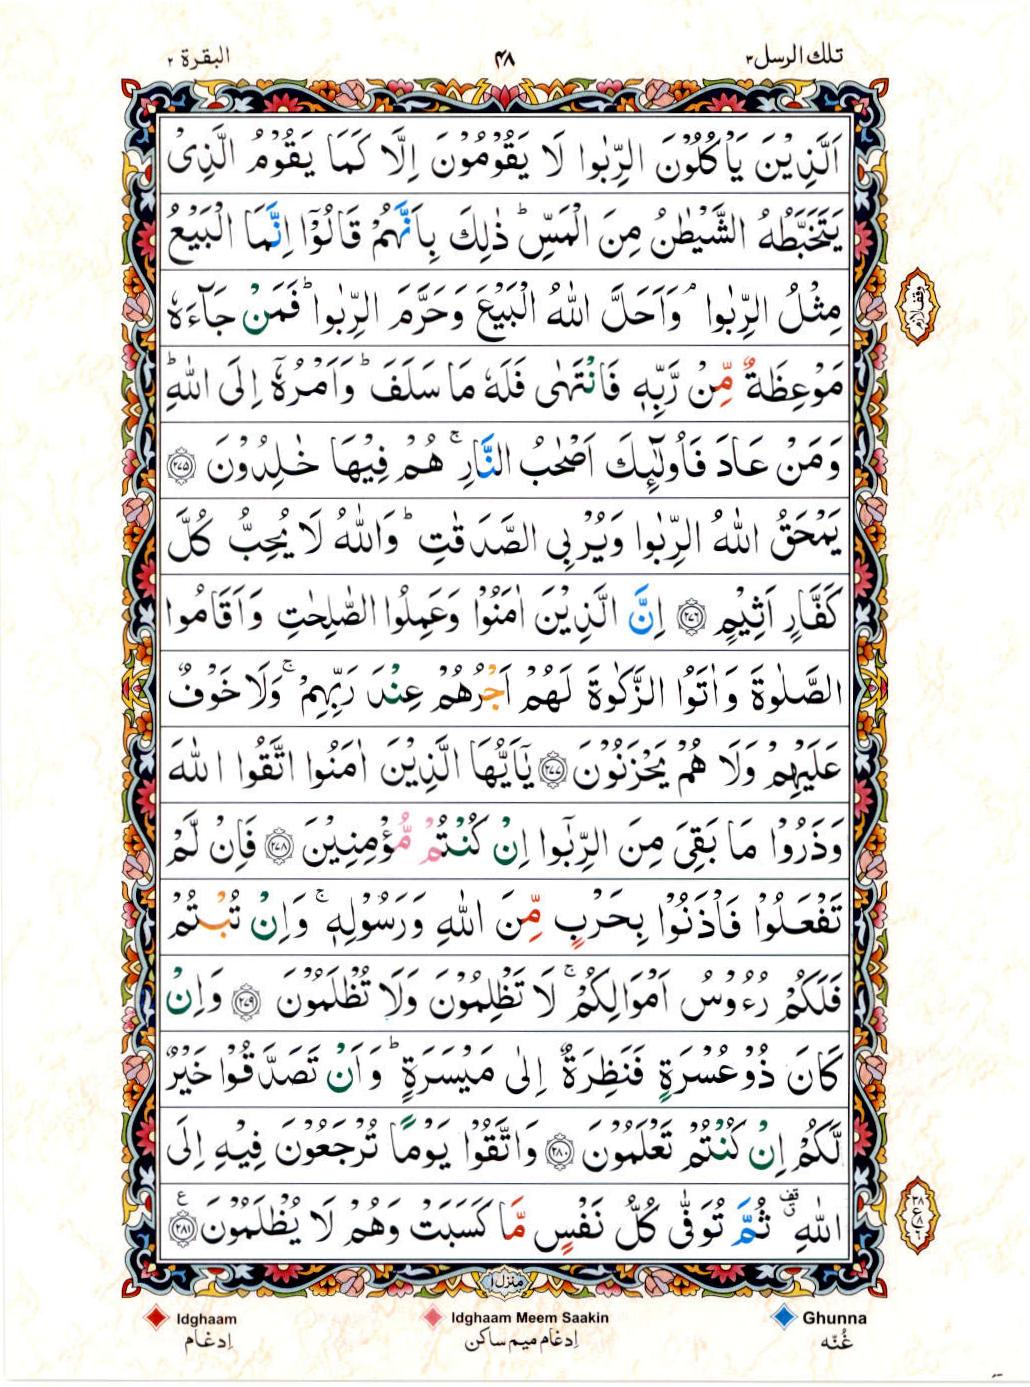 تلك الرسل ٣ ۴۸ البقرة ٢
اَلَّذِيْنَ يَاْكُلُوْنَ الرِّبٰوا لَا يَقُوْمُوْنَ اِلَّا كَمَا يَقُوْمُ الَّذِىْ
يَتَخَبَّطُهُ الشَّيْطٰنُ مِنَ الْمَسِّ ؕ ذٰلِكَ بِاَنَّهُمْ قَالُوْٓا اِنَّمَا الْبَيْعُ
مِثْلُ الرِّبٰوا ۘ وَاَحَلَّ اللّٰهُ الْبَيْعَ وَحَرَّمَ الرِّبٰوا ؕ فَمَنْ جَآءَهٗ
وقف لازم
مَوْعِظَةٌ مِّنْ رَّبِّهٖ فَانْتَهٰى فَلَهٗ مَا سَلَفَ ؕ وَاَمْرُهٗۤ اِلَى اللّٰهِ ؕ
وَمَنْ عَادَ فَاُولٰٓئِكَ اَصْحٰبُ النَّارِ ۚ هُمْ فِيْهَا خٰلِدُوْنَ ﴿٢٧٥﴾
يَمْحَقُ اللّٰهُ الرِّبٰوا وَيُرْبِى الصَّدَقٰتِ ؕ وَاللّٰهُ لَا يُحِبُّ كُلَّ
كَفَّارٍ اَثِيْمٍ ﴿٢٧٦﴾ اِنَّ الَّذِيْنَ اٰمَنُوْا وَعَمِلُوا الصّٰلِحٰتِ وَاَقَامُوا
الصَّلٰوةَ وَاٰتَوُا الزَّكٰوةَ لَهُمْ اَجْرُهُمْ عِنْدَ رَبِّهِمْ ۚ وَلَا خَوْفٌ
عَلَيْهِمْ وَلَا هُمْ يَحْزَنُوْنَ ﴿٢٧٧﴾ يٰۤاَيُّهَا الَّذِيْنَ اٰمَنُوا اتَّقُوا اللّٰهَ
وَذَرُوْا مَا بَقِىَ مِنَ الرِّبٰٓوا اِنْ كُنْتُمْ مُّؤْمِنِيْنَ ﴿٢٧٨﴾ فَاِنْ لَّمْ
تَفْعَلُوْا فَاْذَنُوْا بِحَرْبٍ مِّنَ اللّٰهِ وَرَسُوْلِهٖ ۚ وَاِنْ تُبْتُمْ
فَلَكُمْ رُءُوْسُ اَمْوَالِكُمْ ۚ لَا تَظْلِمُوْنَ وَلَا تُظْلَمُوْنَ ﴿٢٧٩﴾ وَاِنْ
كَانَ ذُوْ عُسْرَةٍ فَنَظِرَةٌ اِلٰى مَيْسَرَةٍ ؕ وَاَنْ تَصَدَّقُوْا خَيْرٌ
لَّكُمْ اِنْ كُنْتُمْ تَعْلَمُوْنَ ﴿٢٨٠﴾ وَاتَّقُوْا يَوْمًا تُرْجَعُوْنَ فِيْهِ اِلَى
اللّٰهِ ۗ ثُمَّ تُوَفّٰى كُلُّ نَفْسٍ مَّا كَسَبَتْ وَهُمْ لَا يُظْلَمُوْنَ ﴿٢٨١﴾ ع
منزل ١
Idghaam Idghaam Meem Saakin Ghunna
اِدغام اِدغام ميم ساكن غُنّه